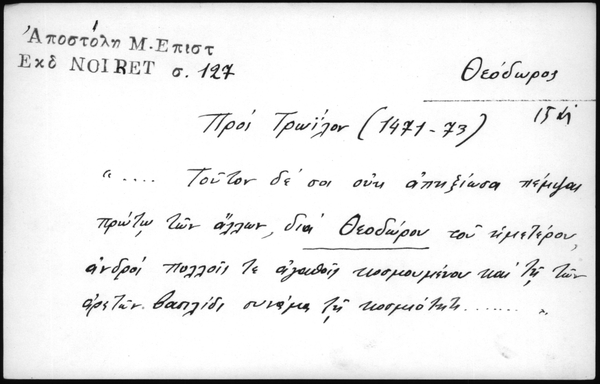 Ἀποστόλη Μ. Επιστ
Εκδ NOIRET σ. 127
Θεόδωρος
15 αἰ
Πρὸς Τρωΐλον (1471-73)
" .... Τοῦτον δέ σοι οὐκ ἀπηξίωσα πέμψαι
πρώτῳ τῶν ἄλλων, διά Θεοδώρου τοῦ ἡμετέρου,
ἀνδρὸς πολλοῖς τε ἀγαθοῖς κοσμουμένου καί τῇ τῶν
ἀρετῶν βασιλίδι συνάμα τῇ κοσμιότητι ....... "